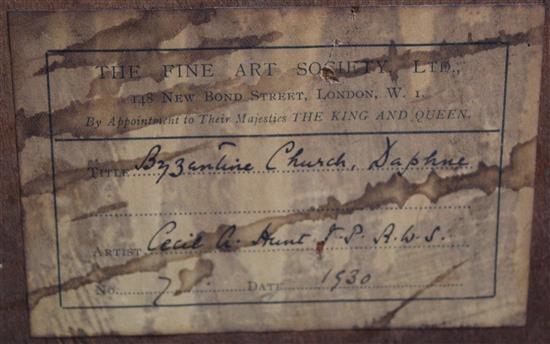 THE FINE ART SOCIETY, LTD.,
148 NEW BOND STREET, LONDON, W. 1.
By Appointment to Their Majesties THE KING AND QUEEN.
TITLE Byzantine Church, Daphne
ARTIST Cecil A. Hunt V.P. R.W.S.
No. 7 DATE 1930